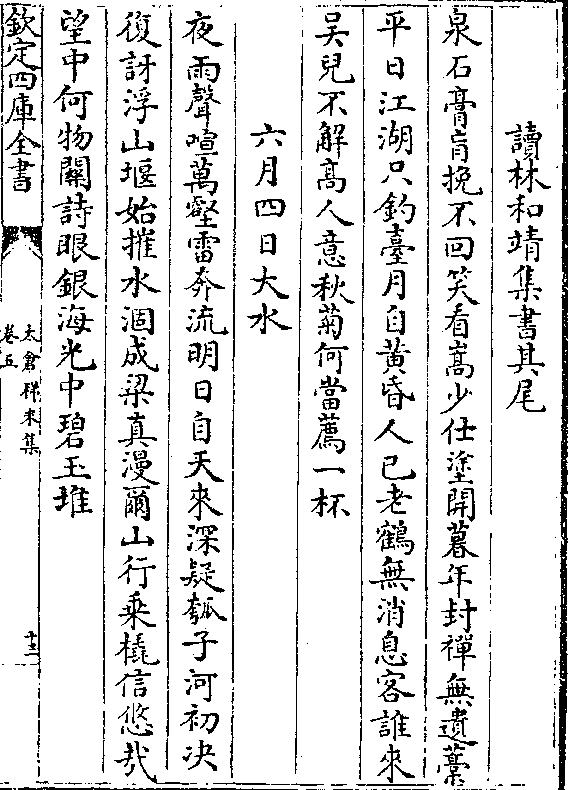 讀林和靖集書其尾
泉石膏肓挽不回笑看嵩少仕塗開暮年封禪無遺藁
平日江湖只釣臺月自黄昏人已老鶴無消息客誰來
吴兒不解高人意秋菊何當薦一杯
六月四日大水
夜雨聲喧萬壑雷奔流明日自天來深疑瓠子河初决
復訝浮山堰始摧水涸成梁真漫爾山行乗橇信悠哉
望中何物關詩眼銀海光中碧玉堆
欽定四庫全書
太倉稊米集
卷五
十三